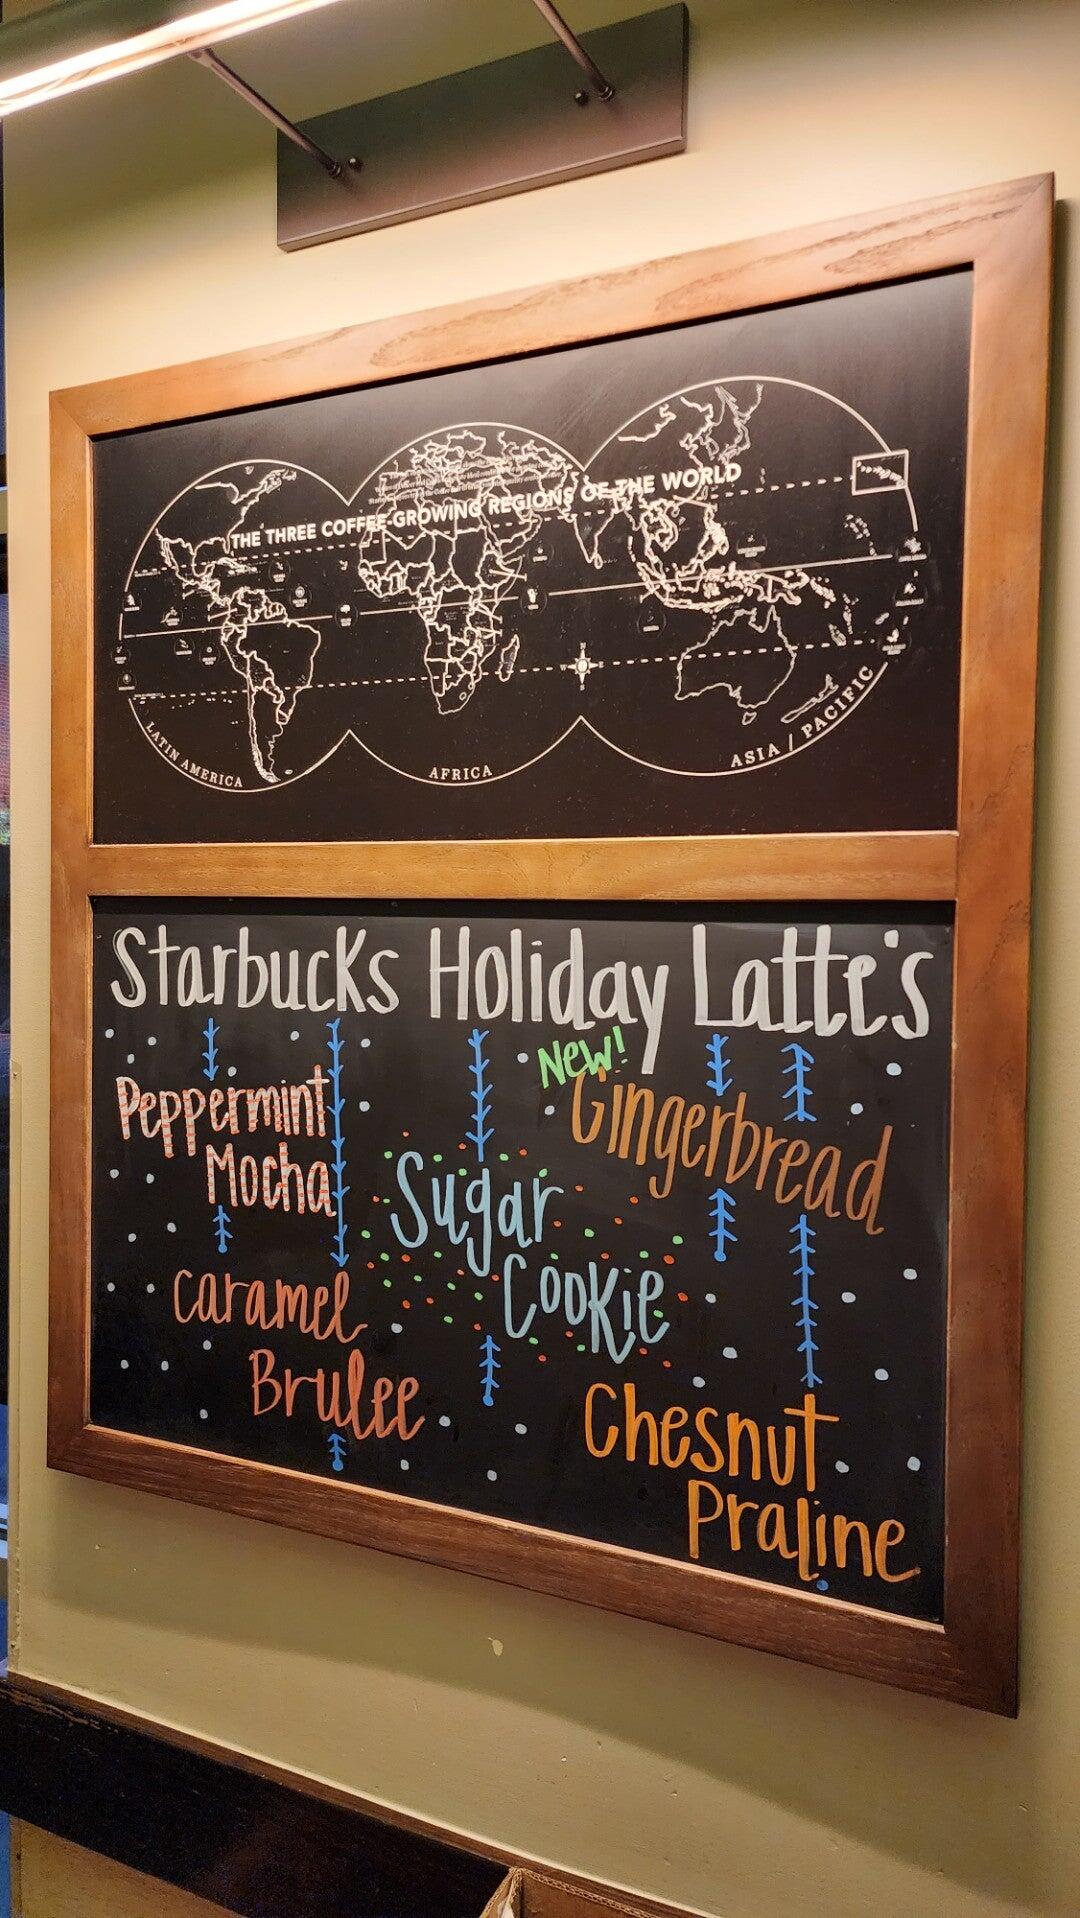 THE THREE COFFEE-GROWING REGIONS OF THE WORLD
LATIN AMERICA
AFRICA
ASIA / PACIFIC
Starbucks Holiday Latte's
Peppermint
Mocha
New!
Gingerbread
Sugar
Cookie
Caramel
Brulee
Chesnut
Praline